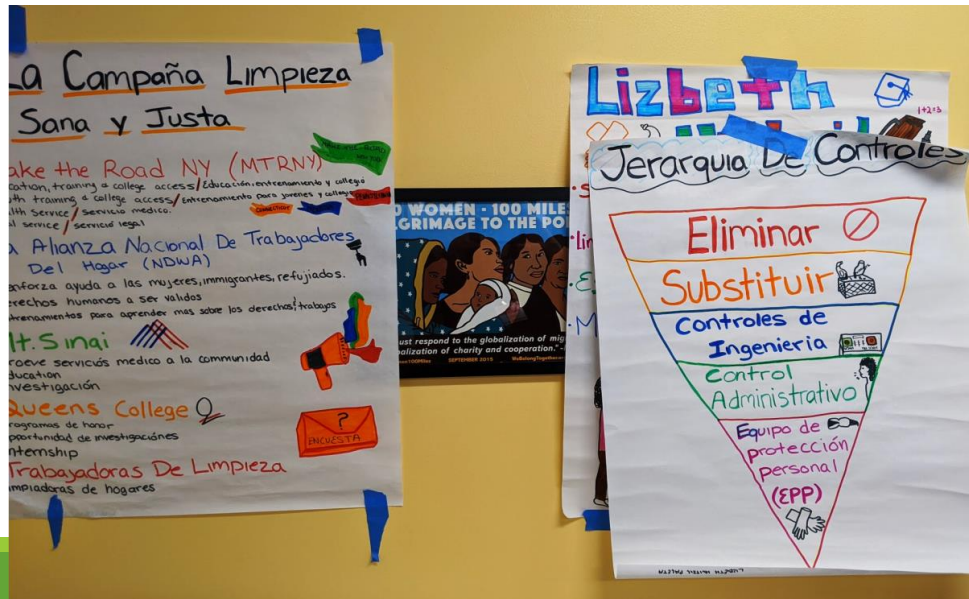 La Campaña Limpieza
Sana y Justa
ake the Road NY (MTRNY)
cation, training & college access/Educación, entrenamiento y collegio
th training & college access/entrenamiento para jovenes y collegio
lth Service/servicio medico.
al service/servicio legal
a Alianza Nacional De Trabajadores
Del Hogar (NDWA)
enforza ayuda a las mujeres, immigrantes, refujiados.
erechos humanos a ser validos
trenamientos para aprender mas sobre los derechos/trabajos
t. Sinai
roeve servicios medico a la communidad
ducation
nvestigación
Queens College
rogramas de honor
portunidad de investigaciónes
nternship
Trabajadoras De Limpieza
impiadoras de hogares
?
ENCUESTA
0 WOMEN - 100 MILES
GRIMAGE TO THE PO
ust respond to the globalization of mig
balization of charity and cooperation."
SEPTEMBER 2015
WeBelongTogether
Lizbeth
1+2=3
Jerarquia De Controles
Eliminar
Substituir
Controles de
Ingenieria
Control
Administrativo
Equipo de
protección
personal
(EPP)